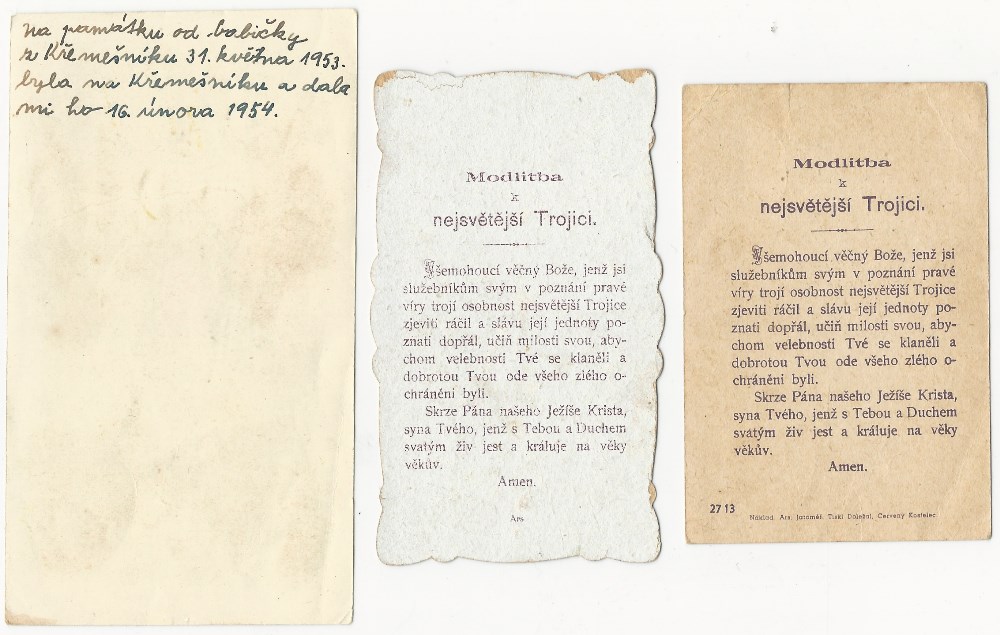 na památku od babičky
z Křemešníku 31. května 1953.
byla na Křemešníku a dala
mi ho 16. února 1954.
Modlitba
k
nejsvětější Trojici.
Všemohoucí věčný Bože, jenž jsi
služebníkům svým v poznání pravé
víry trojí osobnost nejsvětější Trojice
zjeviti ráčil a slávu její jednoty po-
znati dopřál, učiň milosti svou, aby-
chom velebnosti Tvé se klaněli a
dobrotou Tvou ode všeho zlého o-
chráněni byli.
Skrze Pána našeho Ježíše Krista,
syna Tvého, jenž s Tebou a Duchem
svatým živ jest a králuje na věky
věkův.
Amen.
Ars
Modlitba
k
nejsvětější Trojici.
Všemohoucí věčný Bože, jenž jsi
služebníkům svým v poznání pravé
víry trojí osobnost nejsvětější Trojice
zjeviti ráčil a slávu její jednoty po-
znati dopřál, učiň milosti svou, aby-
chom velebnosti Tvé se klaněli a
dobrotou Tvou ode všeho zlého o-
chráněni byli.
Skrze Pána našeho Ježíše Krista,
syna Tvého, jenž s Tebou a Duchem
svatým živ jest a králuje na věky
věkův.
Amen.
27 13
Náklad. Ars, Jaroměř. Tiskl Doležal, Červený Kostelec